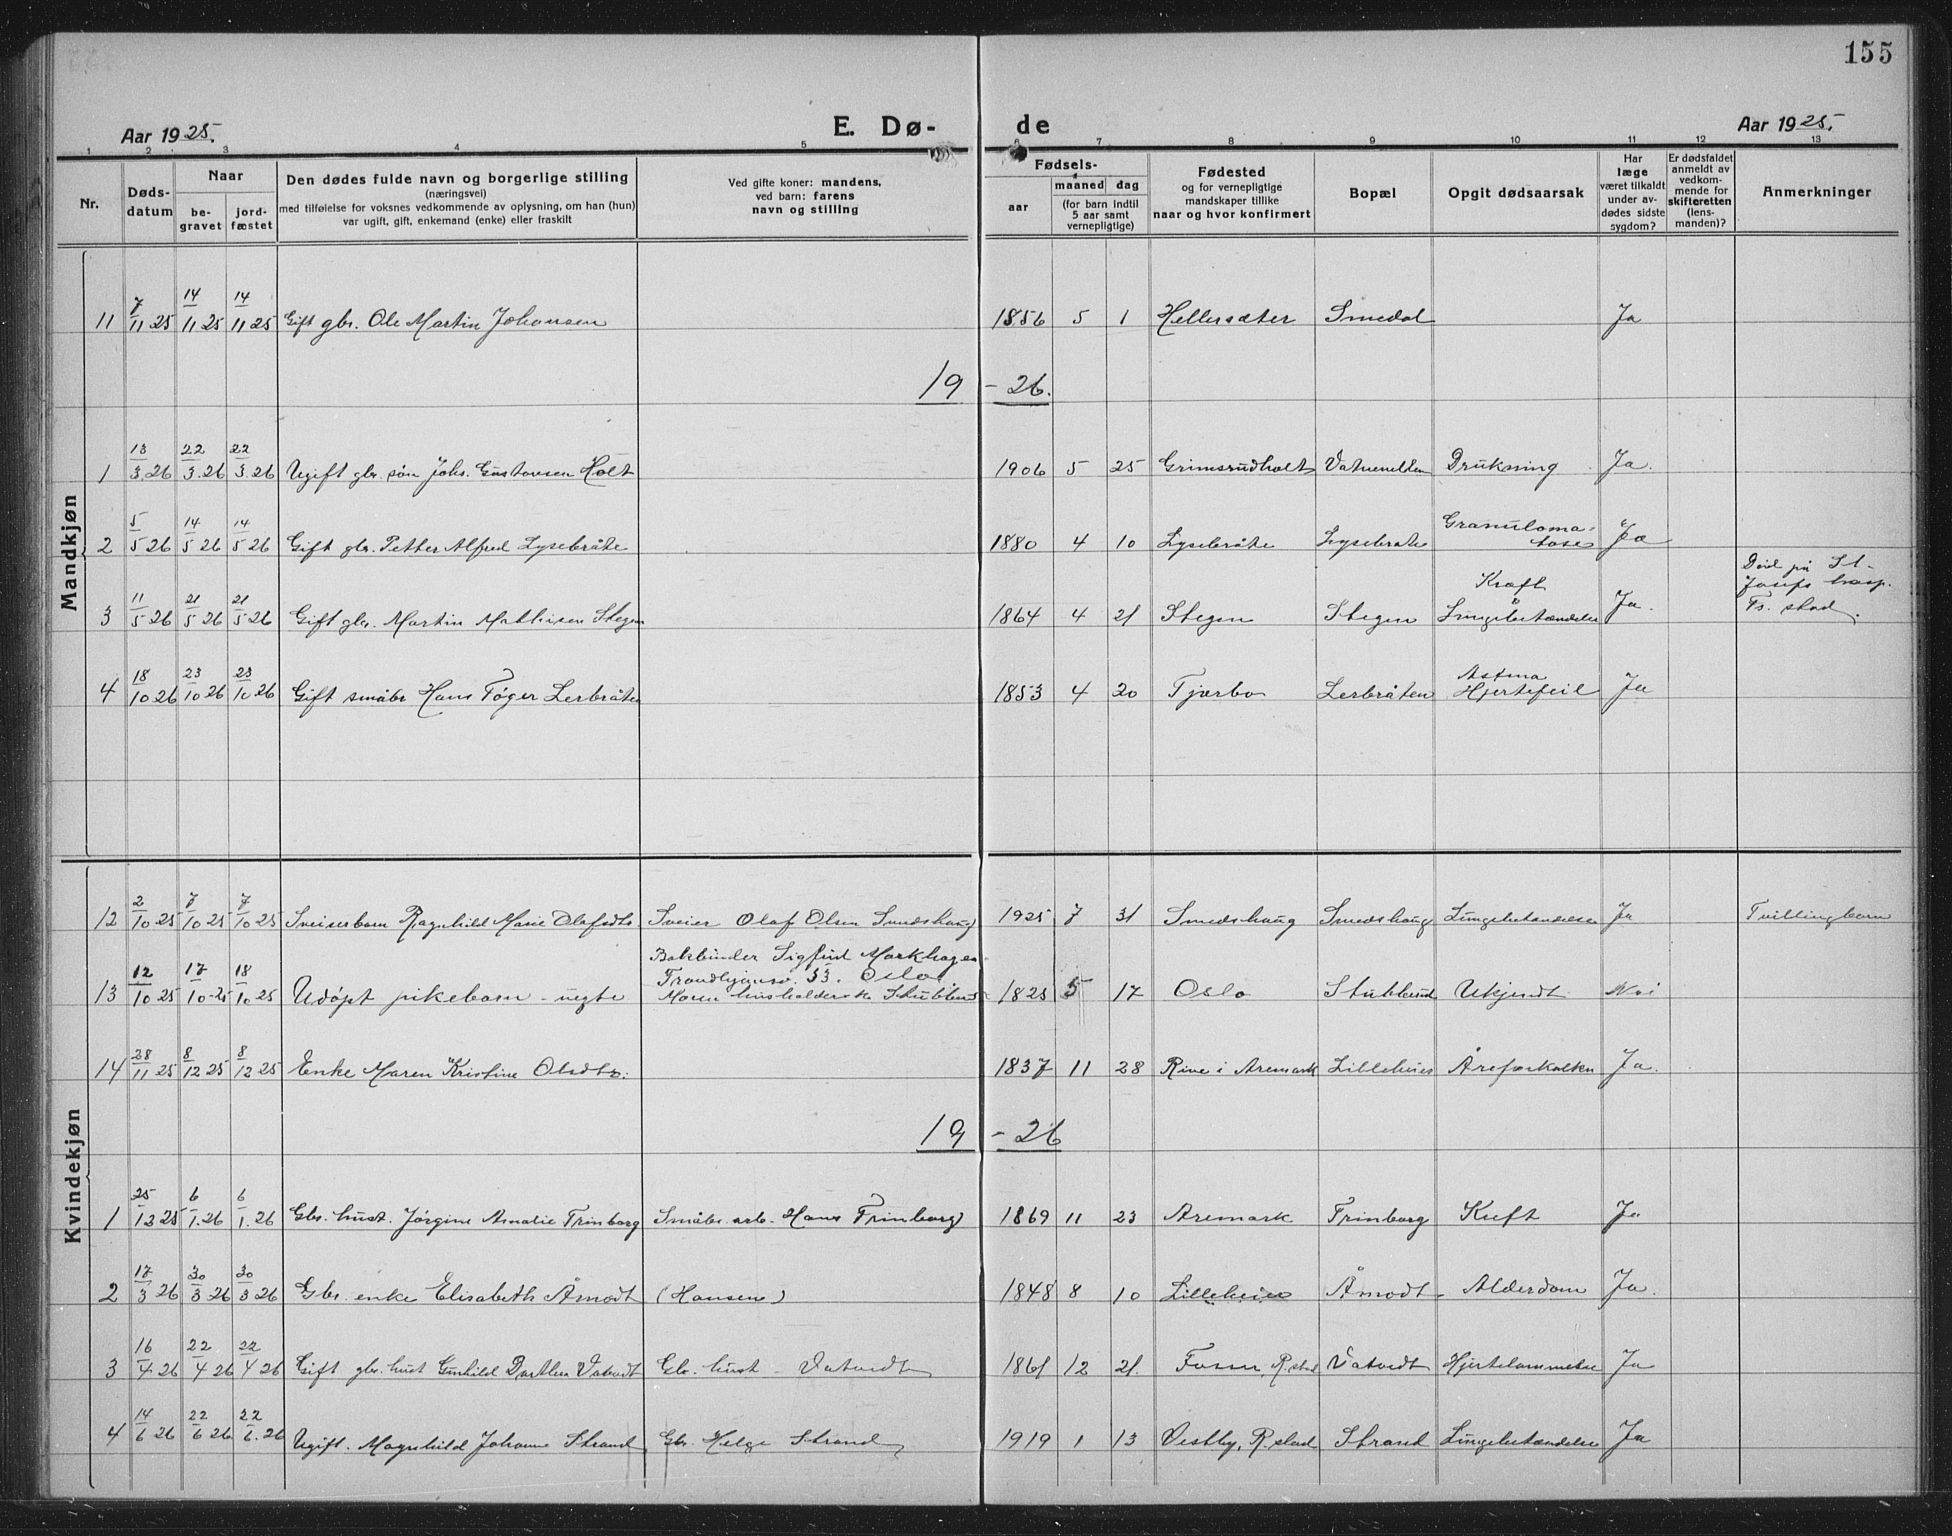 155
Aar 1925. E. Dø- de Aar 1925.
1 2 3 4 5 6 7 8 9 10 11 12 13
Nr.
Døds-
datum
Naar
be-
gravet
jord-
fæstet
Den dødes fulde navn og borgerlige stilling
(næringsvei)
med tilføielse for voksnes vedkommende av oplysning, om han (hun)
var ugift, gift, enkemand (enke) eller fraskilt
Ved gifte koner: mandens,
ved barn: farens
navn og stilling
Fødsels-
aar
maaned dag
(for barn indtil
5 aar samt
vernepligtige)
Fødested
og for vernepligtige
mandskaper tillike
naar og hvor konfirmert
Bopæl
Opgit dødsaarsak
Har
læge
været tilkaldt
under av-
dødes sidste
sygdom?
Er dødsfaldet
anmeldt av
vedkom-
mende for
skifteretten
(lens-
manden)?
Anmerkninger
Mandkjøn
11 7/11 25 14/11 25 14/11 25 Gift gbr. Ole Martin Johansen 1856 5 1 Hellersæter Smedal Ja
19 - 26.
1 13/3 26 22/3. 26 22/3. 26 Ugift gbr. søn Johs. Gustavsen Holt 1906 5 25 Grimsrudholt Drukning Ja.
2 5/5 26 14/5 26 14/5 26 Gift gbr. Petter Alfred Lysebråte 1880 4 10 Lysebråte Lysebråte Granuloma-
tose Ja
3 11/5 26 21/5 26 21/5 26 Gift gbr. Martin Mathisen Stegen 1864 4 21 Stegen Stegen Kræft
Lungebetændelse Ja. Død på St.
Josefs hosp.
Fr. stad.
4 18/10 26 23/10 26 23/10 26 Gift småbr Hans Tøger Lerbråten 1853 4 20 Tjærbo Lerbråten Astma
Hjertefeil Ja
Kvindekjøn
12 2/10 25 7/10 25 7/10 25 Sveiserbarn Ragnhild Marie Olafsdtr. Sveiser Olaf Olsen Smedshaug 1925 7 31 Smedshaug Smedshaug Lungebetændelse Ja Tvillingbarn
13 12/10 25 17/10-25 18/10 25 Udøpt pikebarn - uegte Bokbinder Sigfird Markhagen
Trondhjemsv. 33. Oslo.
Moren husholderske Stubberud 1825 5 17 Oslo Stubberud Ukjendt Nei
14 28/11 25 8/12 25 8/12 25 Enke Maren Kristine Olsdtr. 1837 11 28 Rive i Aremark Lilleheier Åreforkalkn Ja.
19 - 26
1 25/12 25 6/1. 26 6/1. 26 Gbr. hust. Jørgine Amalie Trinborg Småbr. arb. Hans Trinborg 1869 11 23 Aremark Trinborg Kreft Ja
2 17/3 26 30/3 26 30/3 26 Gbr. enke Elisabeth Åmodt (Hansen) 1848 8 10 Lilleheier Åmodt Alderdom Ja.
3 16/4 26 22/4 26 22/4 26 Gift gbr. hust Gunhild Dorthea Vatvedt Gbr. hust - Vatvedt 1861 12 21. Fosser, R. stad Vatvedt Hjertelammelse Ja
4 14/6 26 22/6 26 22/6. 26 Ugift. Magnhild Johanne Strand Gbr. Helge Strand 1919 1 13 Vestby, R. stad Strand Lungebetændelse Ja